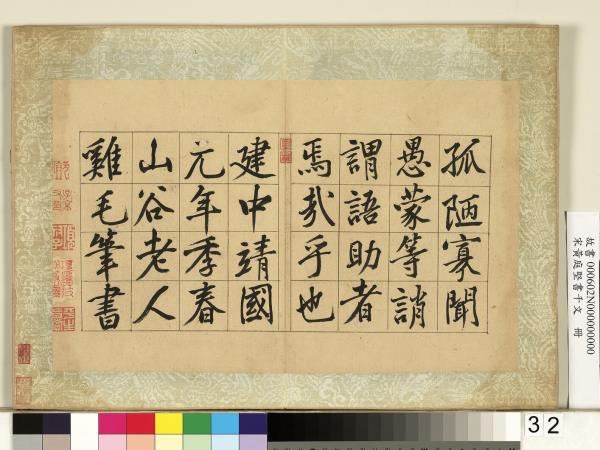 孤陋寡聞
愚蒙等誚
謂語助者
焉哉乎也
建中靖國
元年季春
山谷老人
雞毛筆書
故書 000602N000000000
宋黃庭堅書千文 冊
32